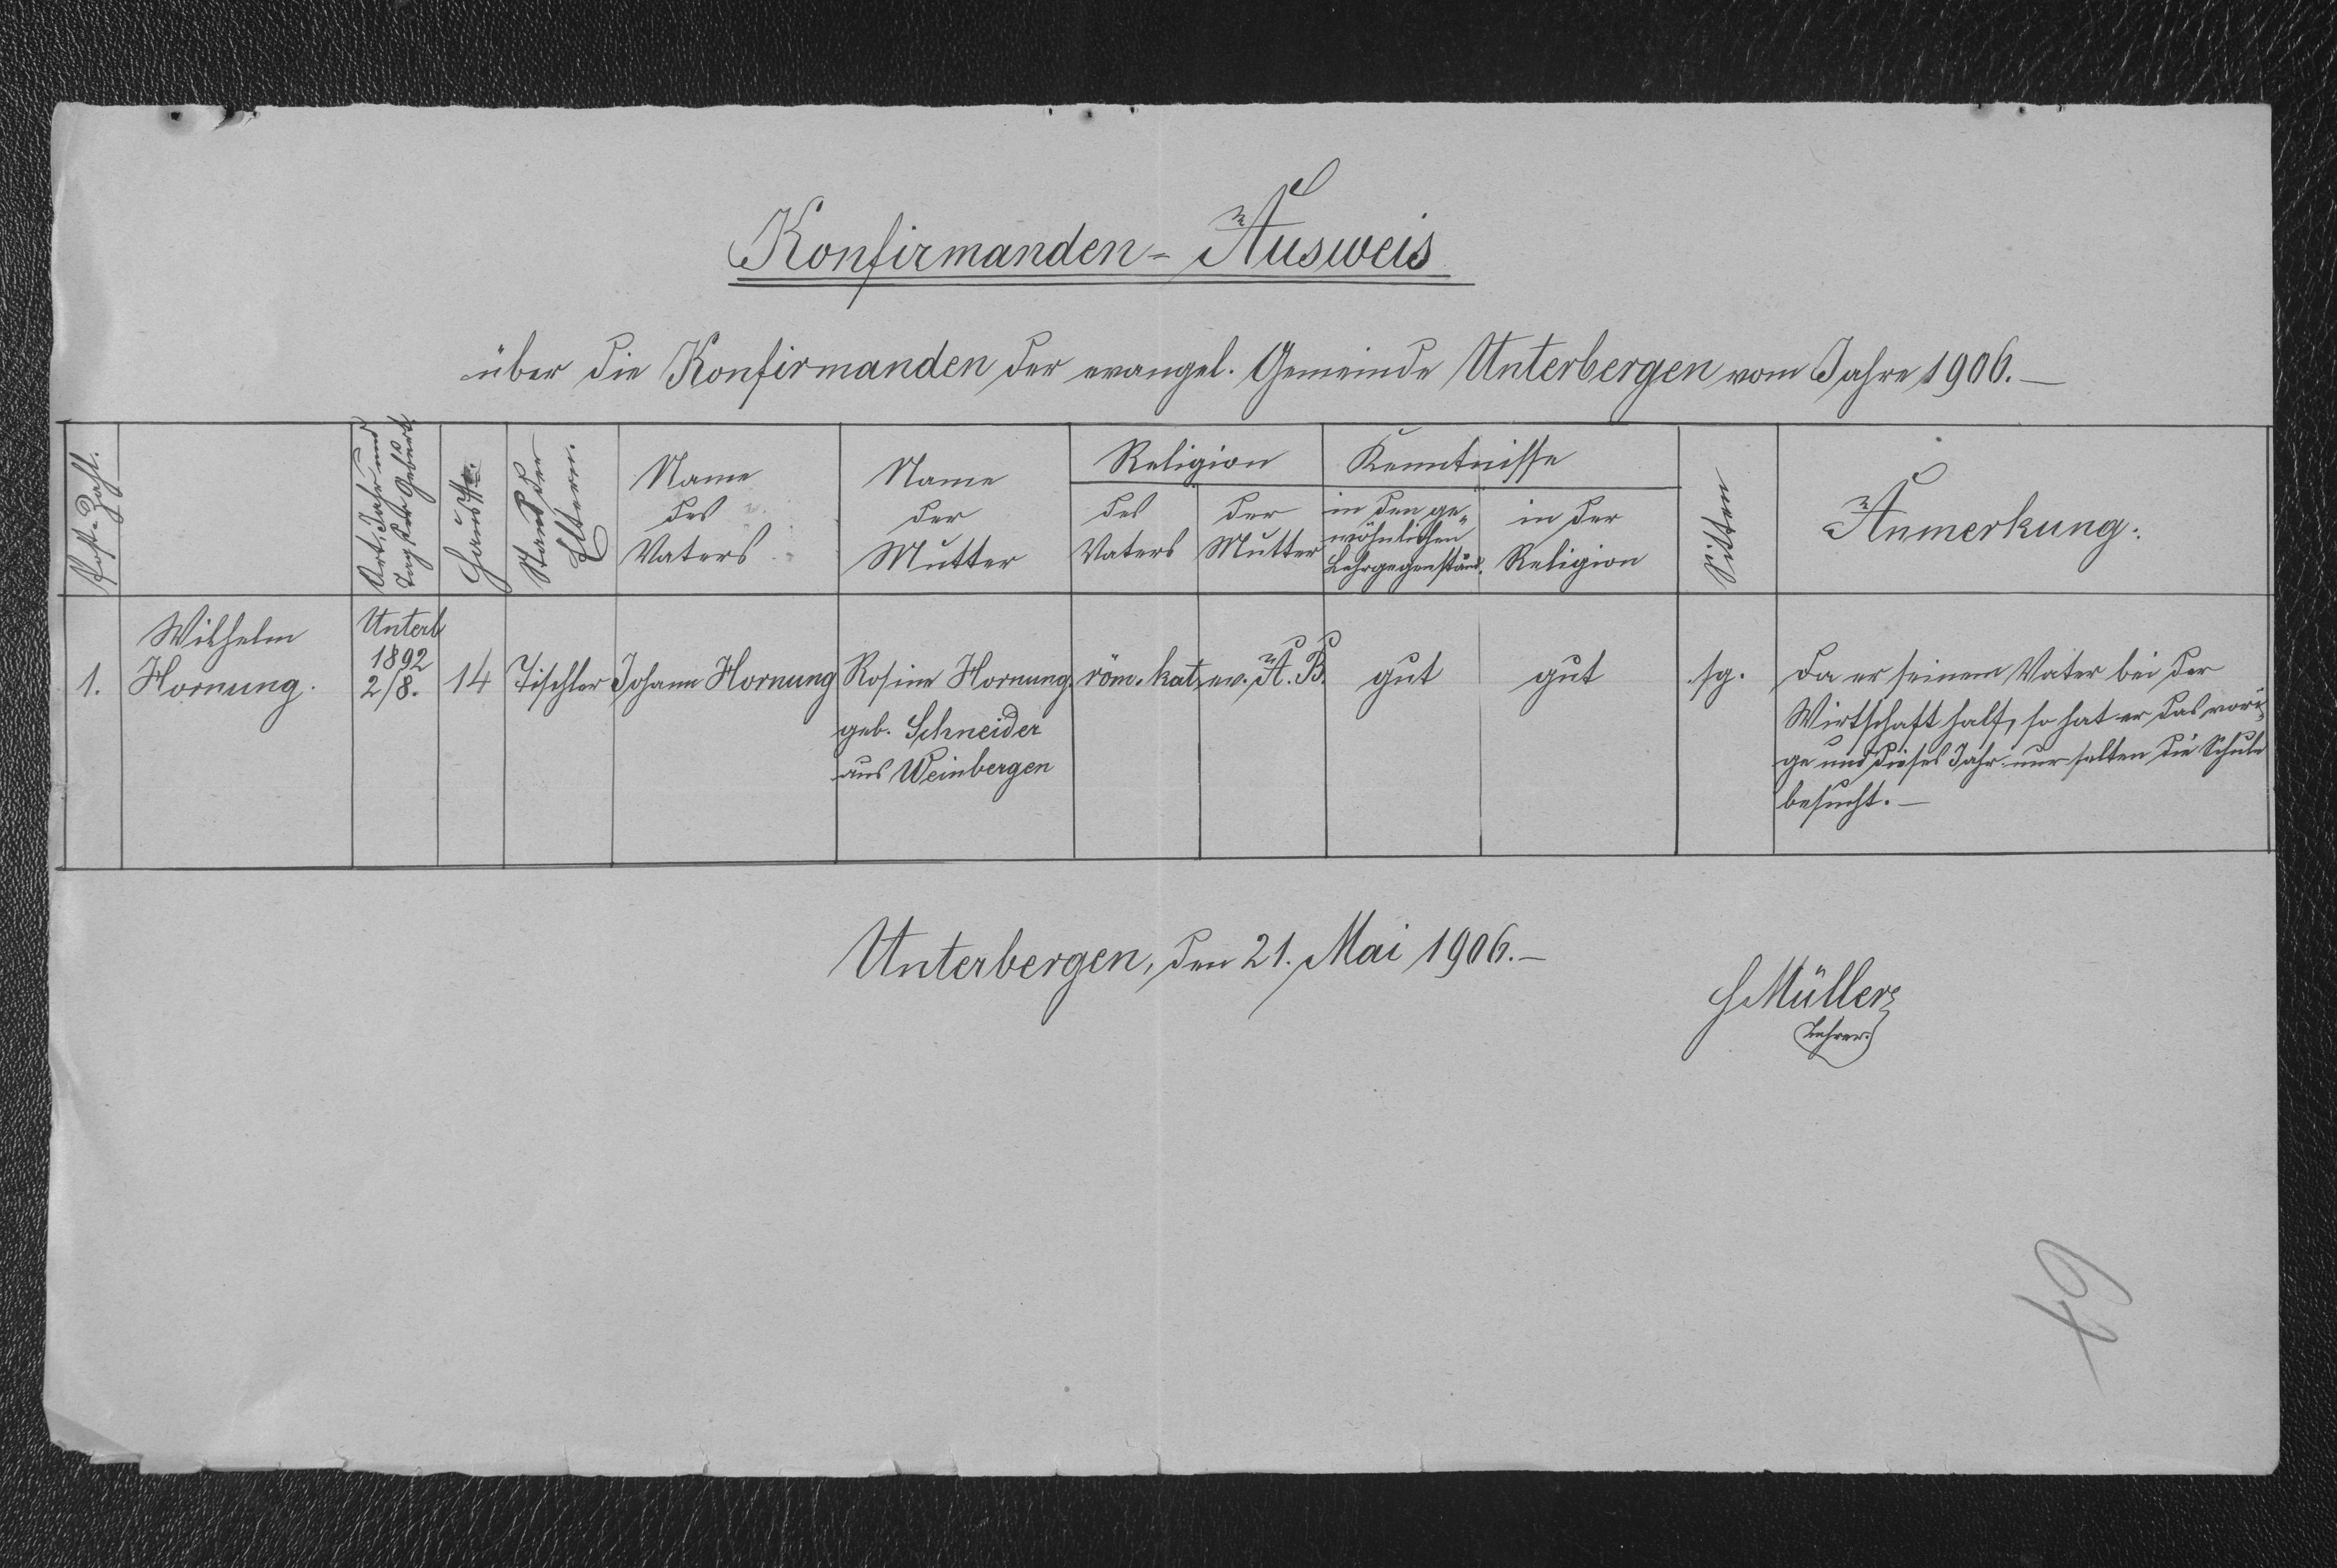 Konfirmanden-Ausweis
über die Konfirmanden der evangel. Gemeinde Unterbergen vom Jahre 1906.—
Post-Zahl.
Ort, Jahr und
Tag der Geburt
Haus №.
Stand der
Eltern.
Name
des
Vaters
Name
der
Mutter
Religion
des
Vaters
der
Mutter
Kenntnisse
in den ge-
wöhnlichen
Lehrgegenständ.
in der
Religion
Sitten
Anmerkung:
1.
Wilhelm
Hornung.
Unterb
1892
2/8.
14
Tischler
Johann Hornung
Rosina Hornung,
geb. Schneider
aus Weinbergen
röm. kat.
ev. A. B.
gut
gut
sg.
Da er seinem Vater bei der
Wirtschaft half, so hat er das vori-
ge und dieses Jahr nur selten die Schule
besucht.—
Unterbergen, den 21. Mai 1906.—
Müller
Lehrer.
49